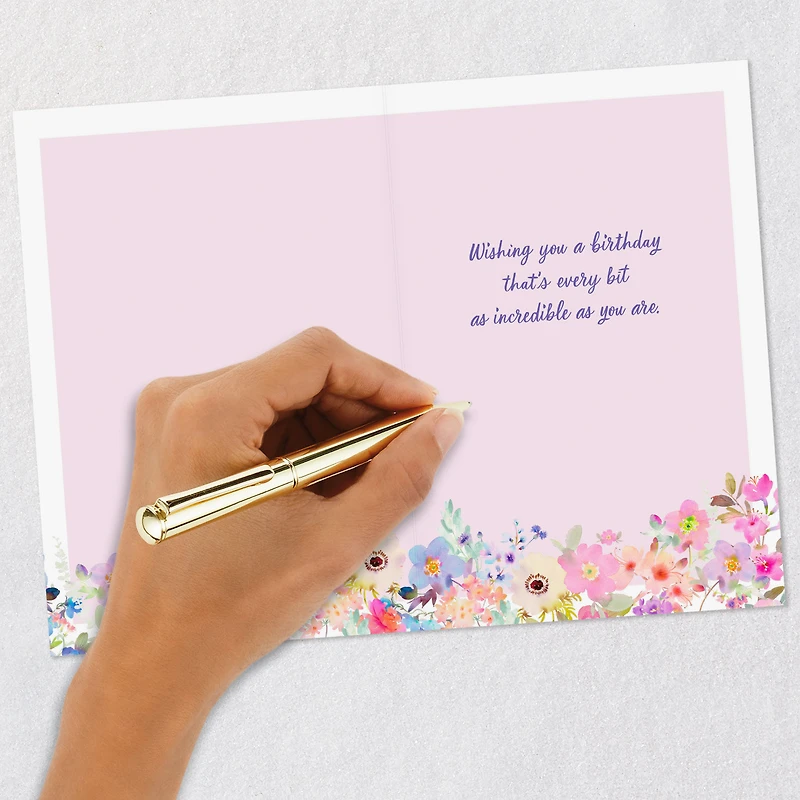 Wishing you a birthday
that's every bit
as incredible as you are.